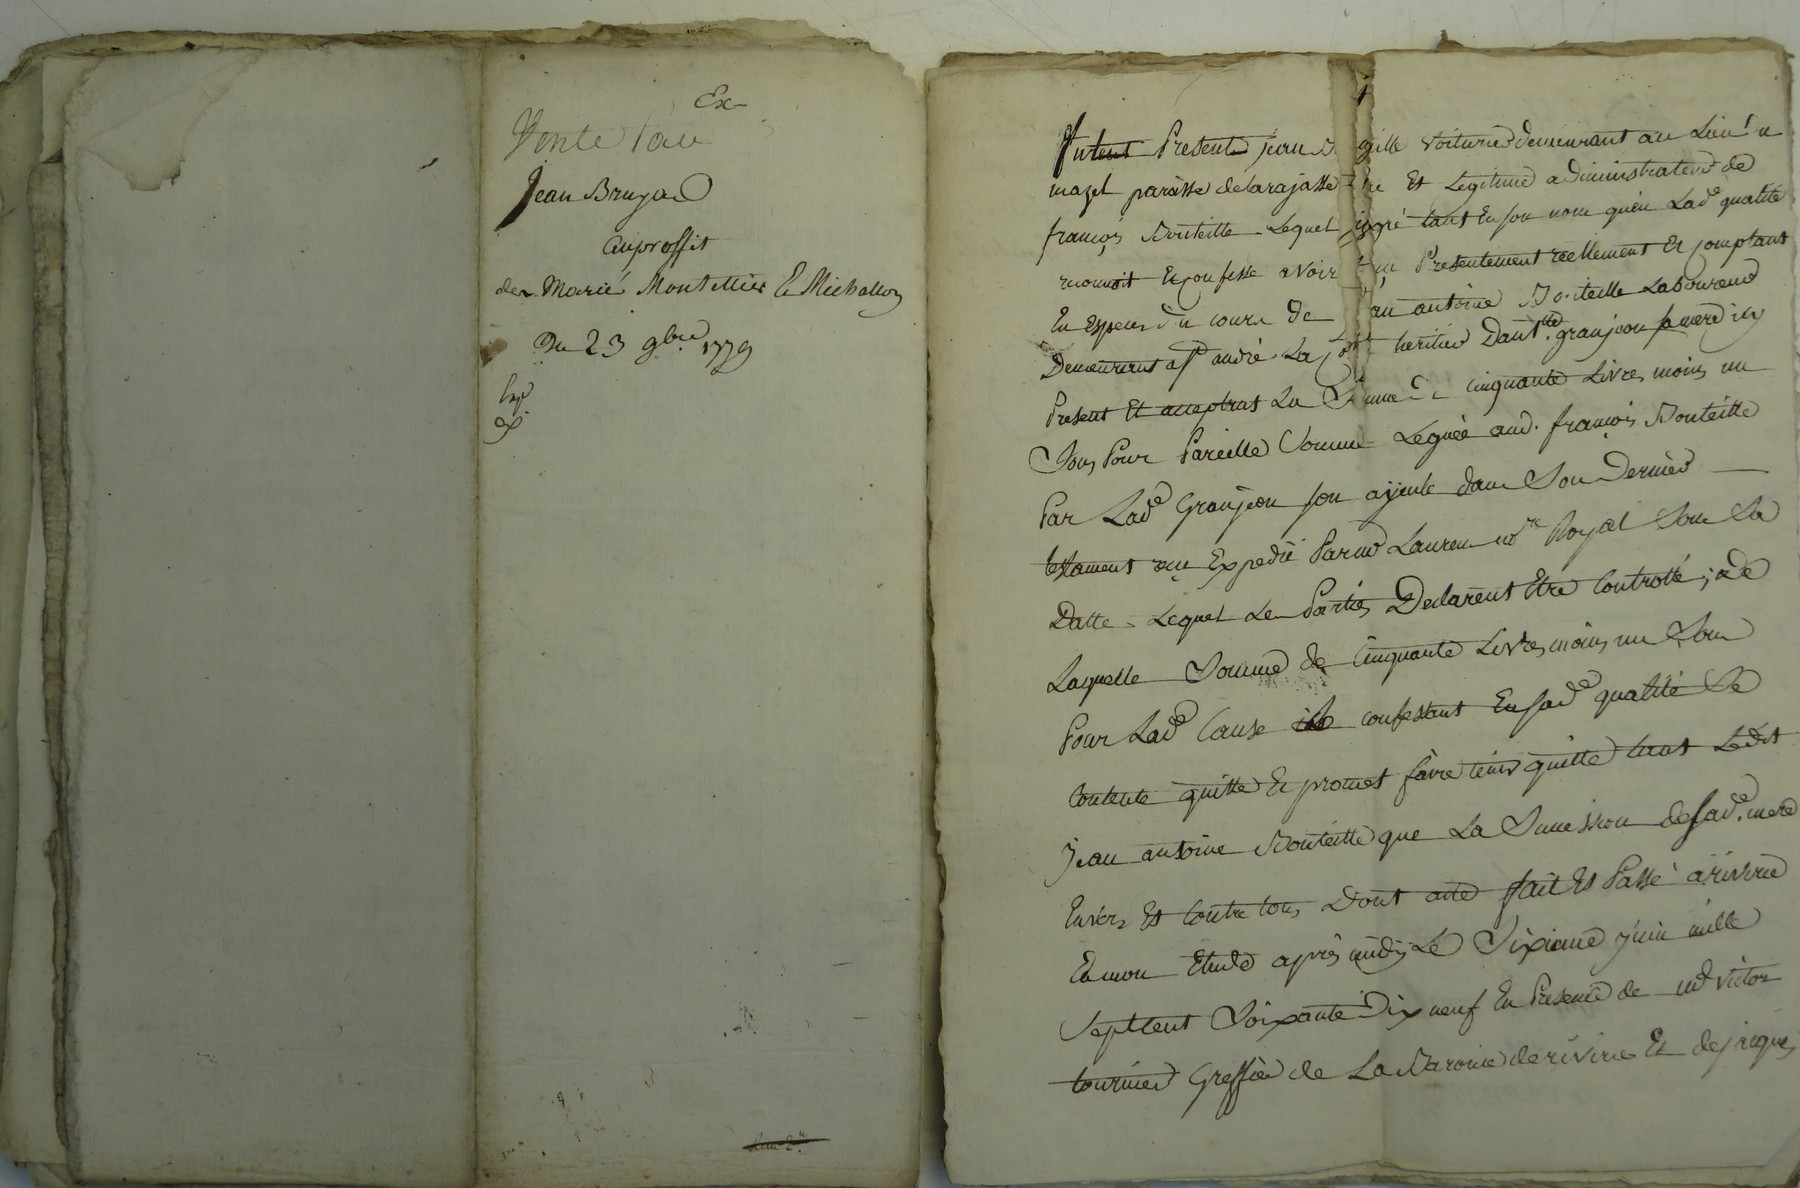 Ex
Vente Par
Jean Bruyas
auproffit
des Mariés Montellier & Michallon
Du 23 9bre 1779
Exp
Present jean voiturier demeurant au Lieu du
mazel paroisse delarajasse Et Legitime administrateur de
françois Bouteille Lequel degré tant En son nom qu'en Lade qualité
reconnoit Et confesse avoir reçu Presentement réellement Et comptant
En Especes du cours de jean antoine Bouteille Laboureur
Demeurant a st andré La heritier Dantte granjeon sa mere icy
Present Et acceptant La Somme de cinquante Livres moins un
Sous Pour Pareille Somme Leguée aud. françois Bouteille
Par Lade Granjeon son ayeule dans Son Dernier
testament reçu Expedié Par me Laurens nore Royal Sous Sa
Datte Lequel Les Parties Declarent Etre Controllé ; de
Laquelle Somme de Cinquante Livres moins un Sous
Pour Lade Cause confessant En sade qualité Se
Contente quitte Et promet faire tenir quitte tant Ledit
Jean antoine Bouteille que La Succession desade. mere
Envers Et Contre tous Dont acte fait Et Passé a riverie
En mon Etude après midy Le Sixieme juin mille
Septcent Soixante Dix neuf En Presence de me victor
tournier Greffier de La Baronie de riverie Et de jacques